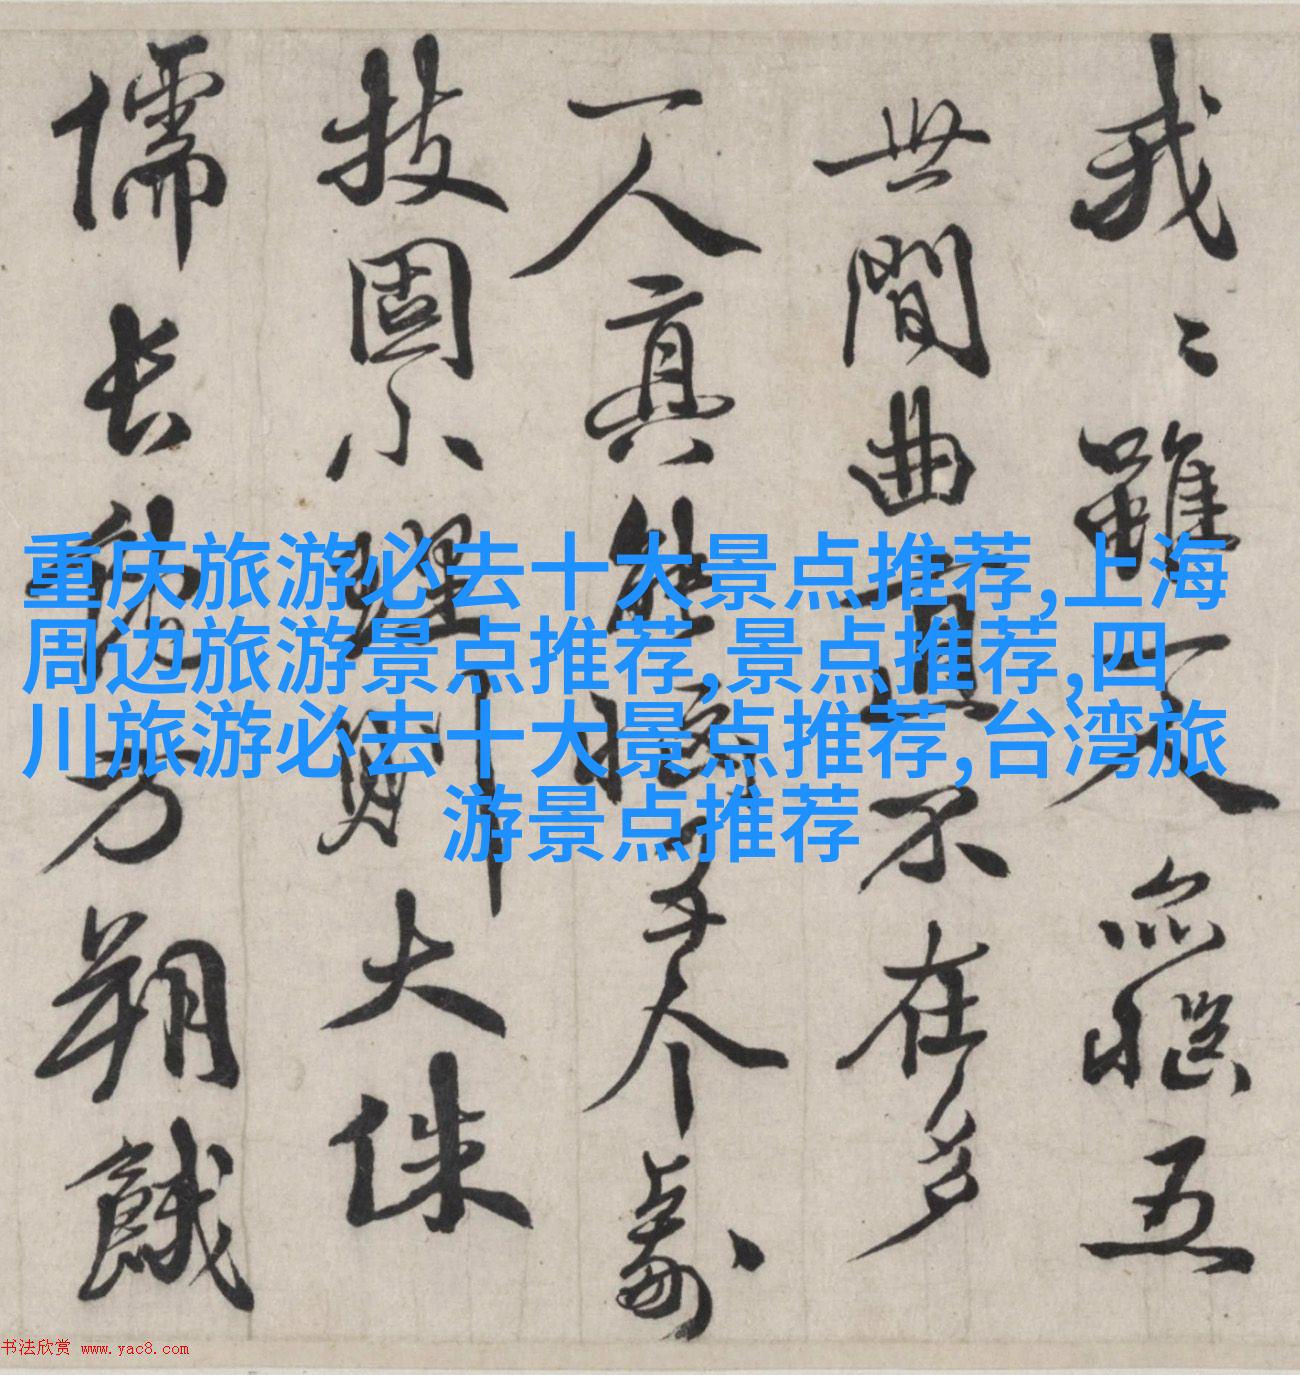 重庆旅游必去十大景点推荐,上海
周边旅游景点推荐,景点推荐,四
川旅游必去十大景点推荐,台湾旅
游景点推荐
我〻雖亦五
世間曲直不在多
一人真能个
技固小則大侏
儒长飽方朔餓
书法欣赏 www.yac8.com